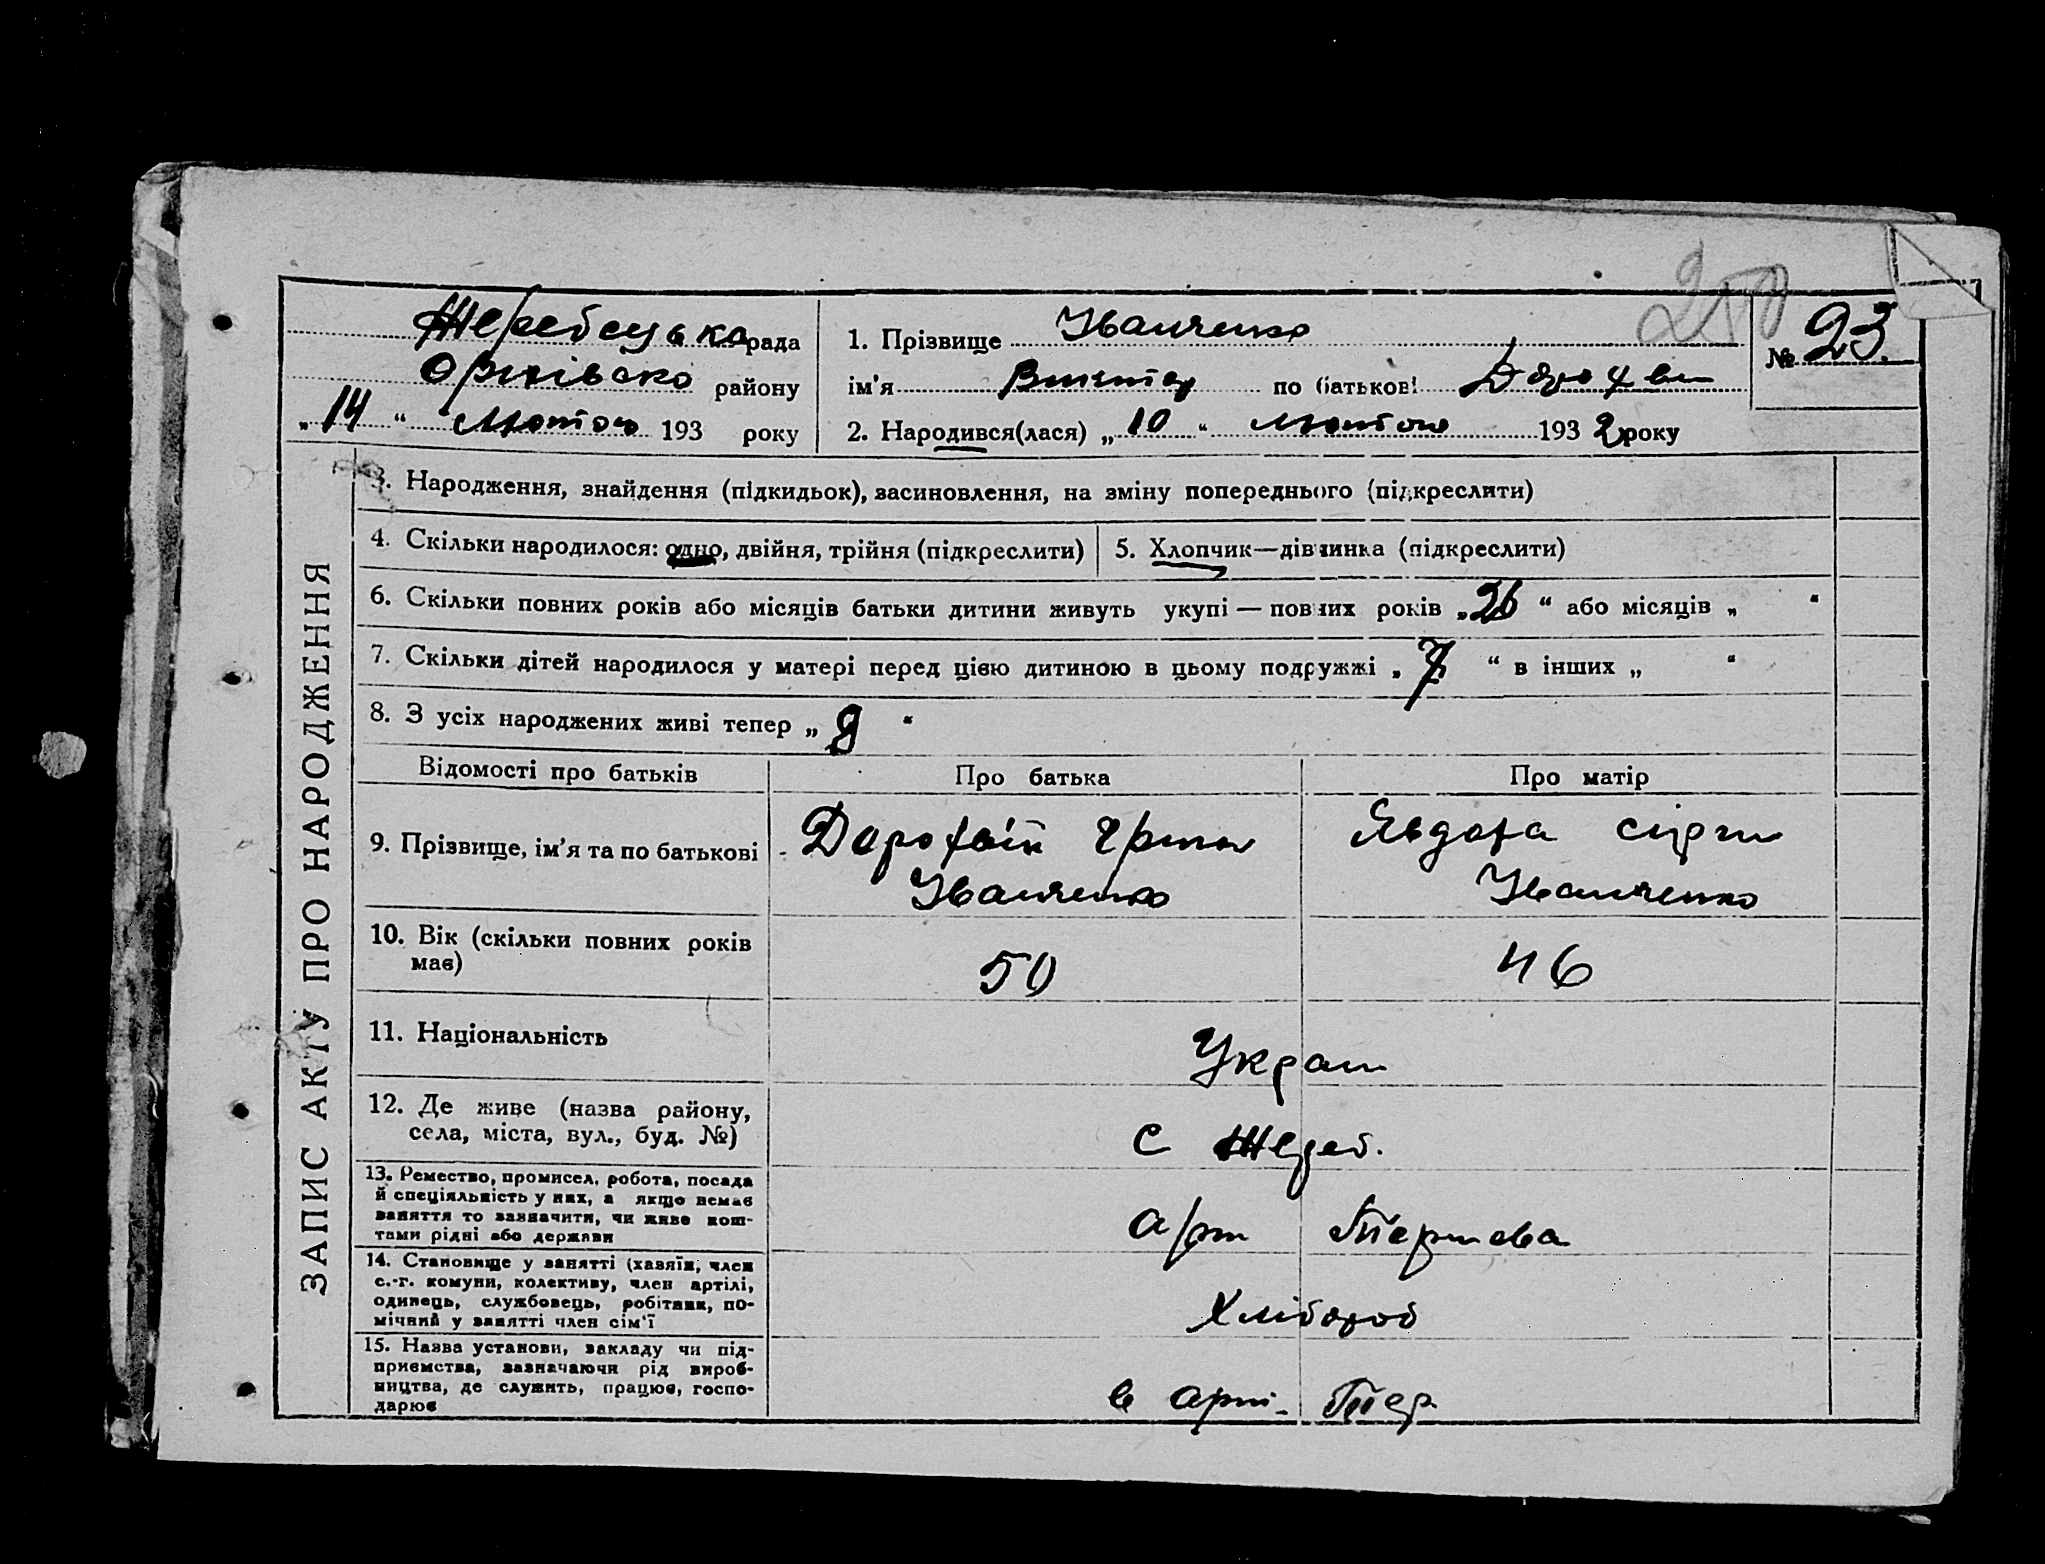 250
Жеребецька рада
Оріхівсько району
„14“ Лютого 193 року
1. Прізвище Іванченко
ім'я Виктор по батькові Дорохви
№ 23.
2. Народився(лася) „10“ Лютого 1932 року
ЗАПИС АКТУ ПРО НАРОДЖЕННЯ
3. Народження, знайдення (підкидьок), засиновлення, на зміну попереднього (підкреслити)
4. Скільки народилося: одно, двійня, трійня (підкреслити)
5. Хлопчик—дівчинка (підкреслити)
6. Скільки повних років або місяців батьки дитини живуть укупі — повних років „26“ або місяців „ “
7. Скільки дітей народилося у матері перед цією дитиною в цьому подружжі „7“ в інших „ “
8. З усіх народжених живі тепер „8“
Відомості про батьків Про батька Про матір
9. Прізвище, ім'я та по батькові
Дорофвій Григор
Іванченко
Явдоха Сірги
Іванченко
10. Вік (скільки повних років
має)
50
46
11. Національність
Украін
12. Де живе (назва району,
села, міста, вул., буд. №)
С Жереб.
13. Ремество, промисел, робота, посада
й спеціяльність у них, а якщо немає
заняття то зазначити, чи живе кош-
тами рідні або держави
арт
14. Становище у занятті (хазяїн, член
с.-г. комуни, колективу, член артілі,
одинець, службовець, робітник, по-
мічний у занятті член сім'ї
Хлібороб
15. Назва установи, закладу чи під-
приємства, зазначаючи рід вироб-
ництва, де служить, працює, госпо-
дарює
в арті-